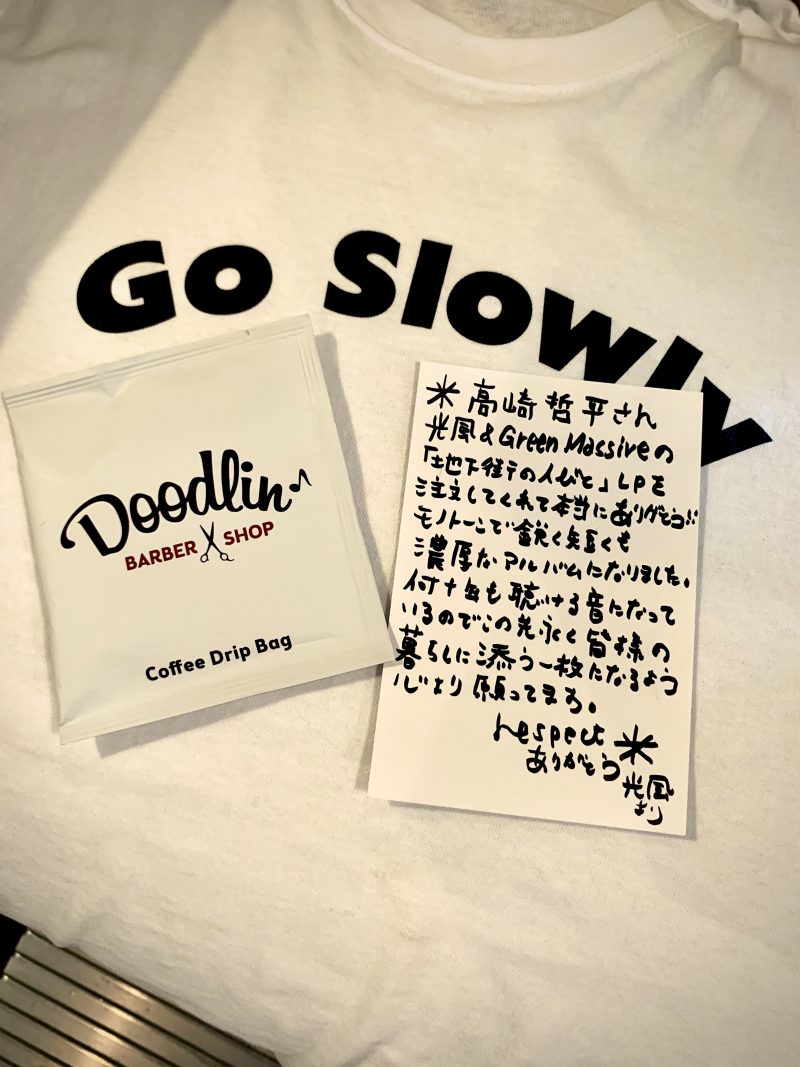 Go Slowly
Doodlin♪
BARBER SHOP
Coffee Drip Bag
米 高崎 哲平さん
光風 & Green Massiveの
「地下街の人びと」LPを
注文してくれて本当にありがとう!!
モノトーンで鋭く短くも
濃厚なアルバムになりました。
何十年も聴ける音になって
いるのでこの先永く皆様の
暮らしに添う一枚になるよう
心より願ってます。
respect 米
ありがとう
光風
より